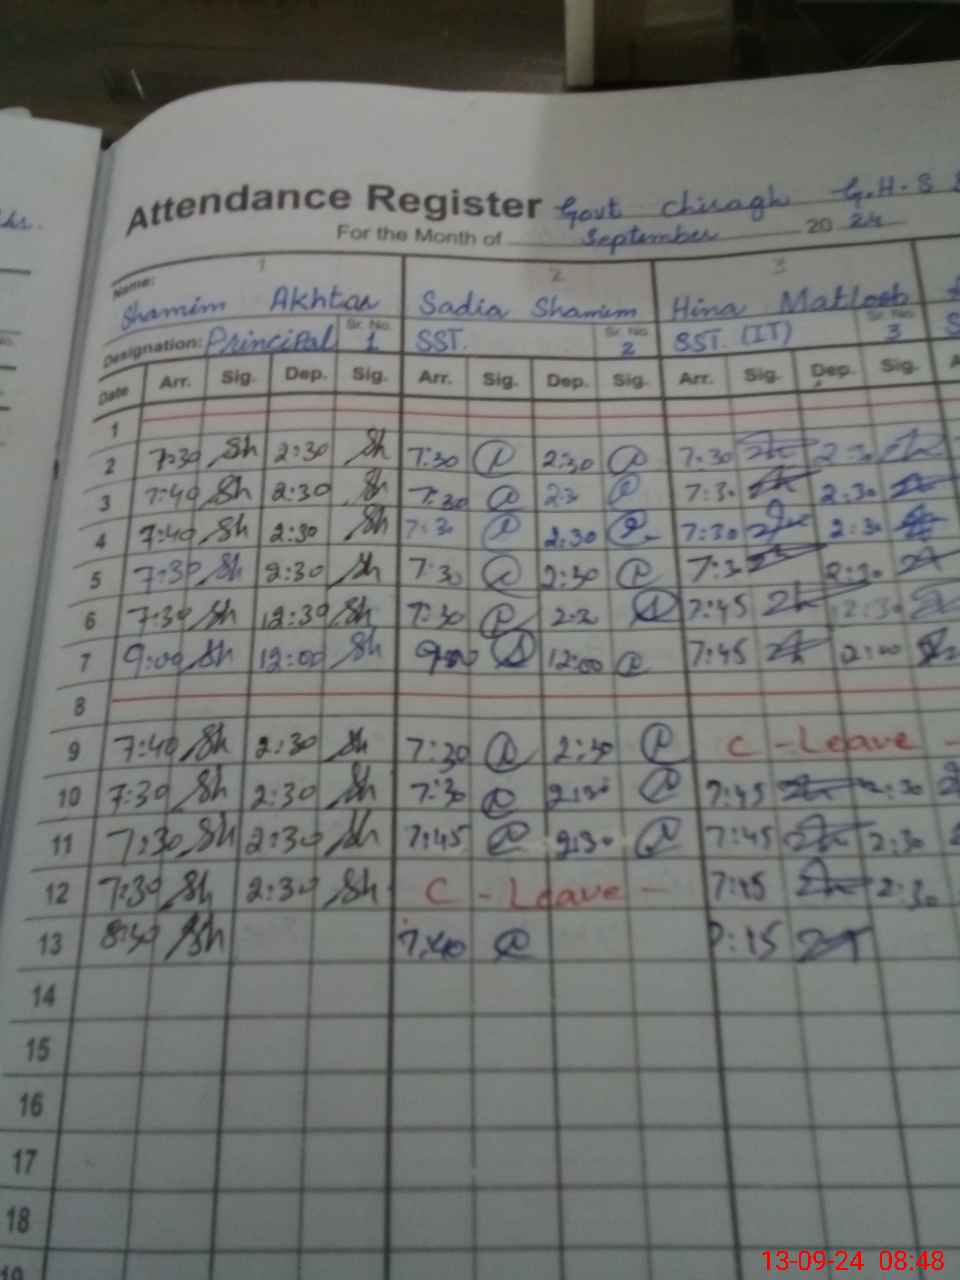 Attendance Register Govt chiragh G.H.S
For the Month of September 20 24
1 2 3
Name: Shamim Akhtar Sadia Shamim Hina Matloob
Designation: Principal Sr. No. 1 SST. Sr. No. 2 SST (IT) Sr. No. 3
Date Arr. Sig. Dep. Sig. Arr. Sig. Dep. Sig. Arr. Sig. Dep. Sig.
1
2 7:30 Sh 2:30 Sh 7:30 2:30 7:30 2:30
3 7:40 Sh 2:30 Sh 7:30 2:3 7:30 2:30
4 7:40 Sh 2:30 Sh 7:30 2:30 7:30 2:30
5 7:30 Sh 2:30 Sh 7:30 2:30 7:3 2:30
6 7:30 Sh 12:30 Sh 7:30 7:45 12:30
7 9:00 Sh 12:00 Sh 9:00 12:00 7:45
8
9 7:40 Sh 2:30 Sh 7:30 2:30 C - Leave -
10 7:30 Sh 2:30 Sh 7:30 2:30 7:45 2:30
11 7:30 Sh 2:30 Sh 7:45 2:30 7:45 2:30
12 7:30 Sh 2:30 Sh C - Leave - 7:45 2:30
13 Sh 7:40
14
15
16
17
18
19
13-09-24 08:48